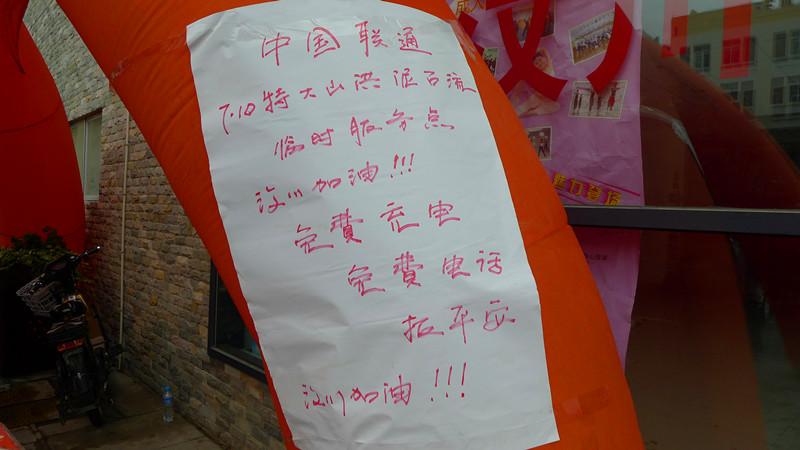 中国联通
7.10特大山洪泥石流
临时服务点
汶川加油!!!
免費充电
免費电话
报平安
汶川加油!!!